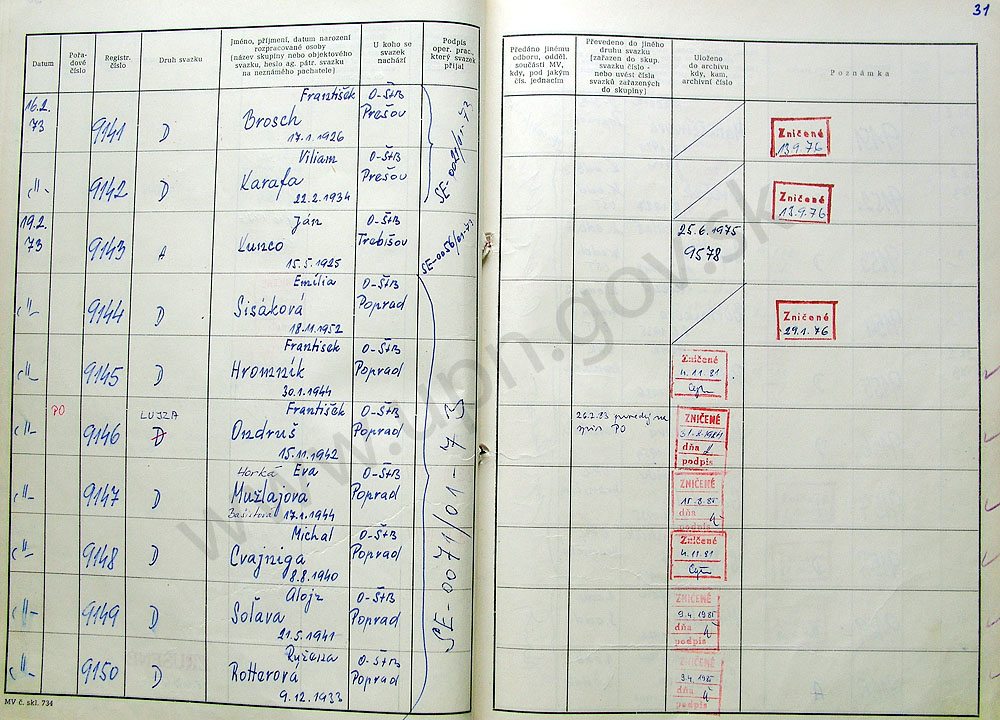 31
Datum
Pořa-
dové
číslo
Registr.
číslo
Druh svazku
Jméno, příjmení, datum narození
rozpracované osoby
(název skupiny nebo objektového
svazku, heslo ag. pátr. svazku
na neznámého pachatele)
U koho se
svazek
nachází
Podpis
oper. prac.,
který svazek
přijal
Předáno jinému
odboru, odděl.
součásti MV,
kdy, pod jakým
čís. jednacím
Převedeno do jiného
druhu svazku
(zařazen do skup.
svazku číslo -
nebo uvést čísla
svazků zařazených
do skupiny)
Uloženo
do archivu
kdy, kam,
archivní číslo
Poznámka
16.2.
73
9141
D
František
Brosch
17.1.1926
O-ŠtB
Prešov
Zničené
13.9.76
-"-
9142
D
Viliam
Karafa
22.2.1934
O-ŠtB
Prešov
Zničené
13.9.76
19.2.
73
9143
A
Ján
Kunco
15.5.1925
O-ŠtB
Trebišov
SE-0056/01-73
25.6.1975
9578
-"-
9144
D
Emília
Sisáková
18.11.1952
O-ŠtB
Poprad
Zničené
29.1.76
-"-
9145
D
František
Hromník
30.1.1944
O-ŠtB
Poprad
Zničené
4.11.81
PO
-"-
9146
LUJZA
D
František
Ondruš
15.11.1942
O-ŠtB
Poprad
26.2.83
PO
ZNIČENÉ
dňa
podpis
-"-
9147
D
Horká Eva
Mužlajová
17.1.1944
O-ŠtB
Poprad
ZNIČENÉ
dňa
podpis
-"-
9148
D
Michal
Cvajniga
8.8.1940
O-ŠtB
Poprad
Zničené
4.11.81
-"-
9149
D
Alojz
Solava
21.5.1941
O-ŠtB
Poprad
ZNIČENÉ
9.4.1985
dňa
podpis
-"-
9150
D
Ružena
Rotterová
9.12.1933
O-ŠtB
Poprad
ZNIČENÉ
dňa
podpis
SE-0071/01-73
MV č. skl. 734
www.upn.gov.sk